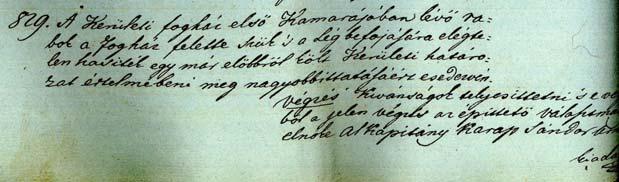 829. A Kerületi fogház első Kamarájában lévő ra=
bok a Fogház felette szük 's a lég befojására elegte=
len hasiték egy más előbbről költ Kerületi határo=
zat értelmébeni meg nagyobbittatásáért esedeznek.
végzés Kivánságok tellyesittetni s e vé
ből a jelen végzés az épittető választmá
elnöke Alkapitány Karap Sándor
kiada